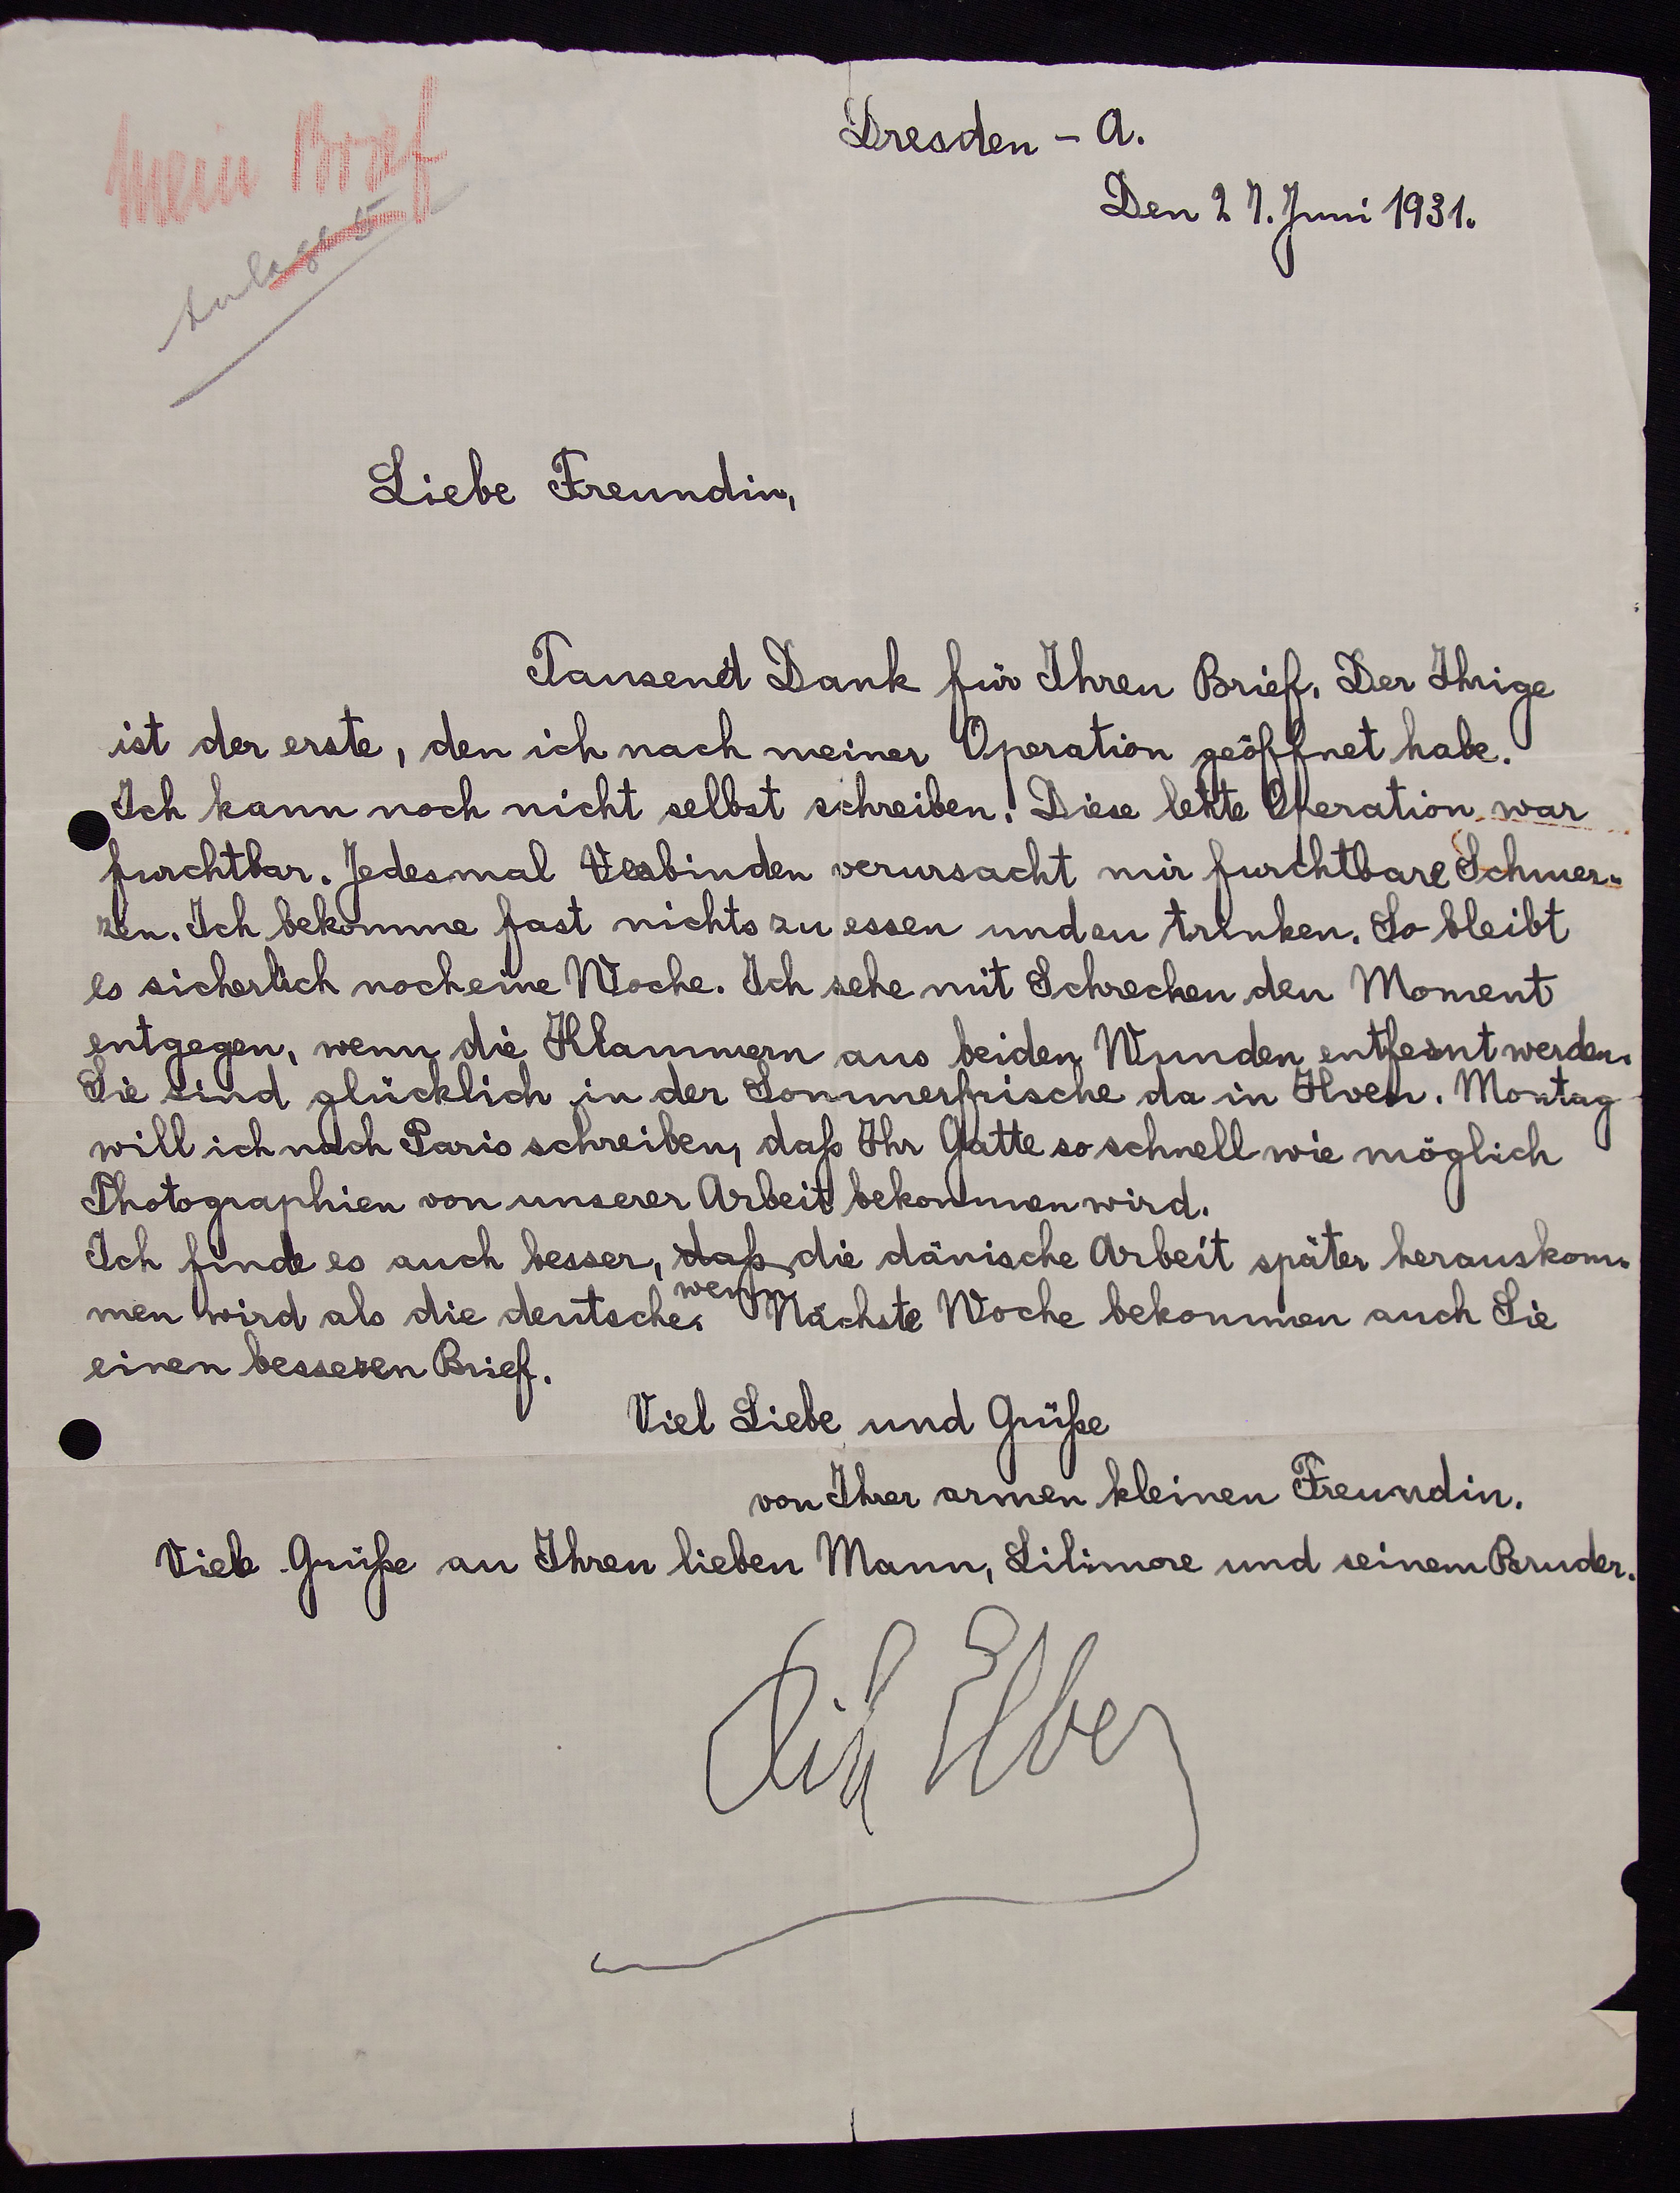 Mein Brief
Anlage 5
Dresden – A.
Den 27. Juni 1931.
Liebe Freundin,
Tausend Dank für Ihren Brief. Der Ihrige
ist der erste, den ich nach meiner Operation geöffnet habe.
Ich kann noch nicht selbst schreiben. Diese letzte Operation war
furchtbar. Jedesmal Verbinden verursacht mir furchtbare Schmer-
zen. Ich bekomme fast nichts zu essen und zu trinken. So bleibt
es sicherlich noch eine Woche. Ich sehe mit Schrecken den Moment
entgegen, wenn die Klammern aus beiden Wunden entfernt werden.
Sie sind glücklich in der Sommerfrische da in Hven. Montag
will ich nach Paris schreiben, daß Ihr Gatte so schnell wie möglich
Photographien von unserer Arbeit bekommen wird.
Ich finde es auch besser, daß die dänische Arbeit später herauskom-
wenn
men wird als die deutsche. Nächste Woche bekommen auch Sie
einen besseren Brief.
Viel Liebe und Grüße
von Ihrer armen kleinen Freundin.
Viele Grüße an Ihren lieben Mann, Lilimore und seinem Bruder.
Lili Elbe